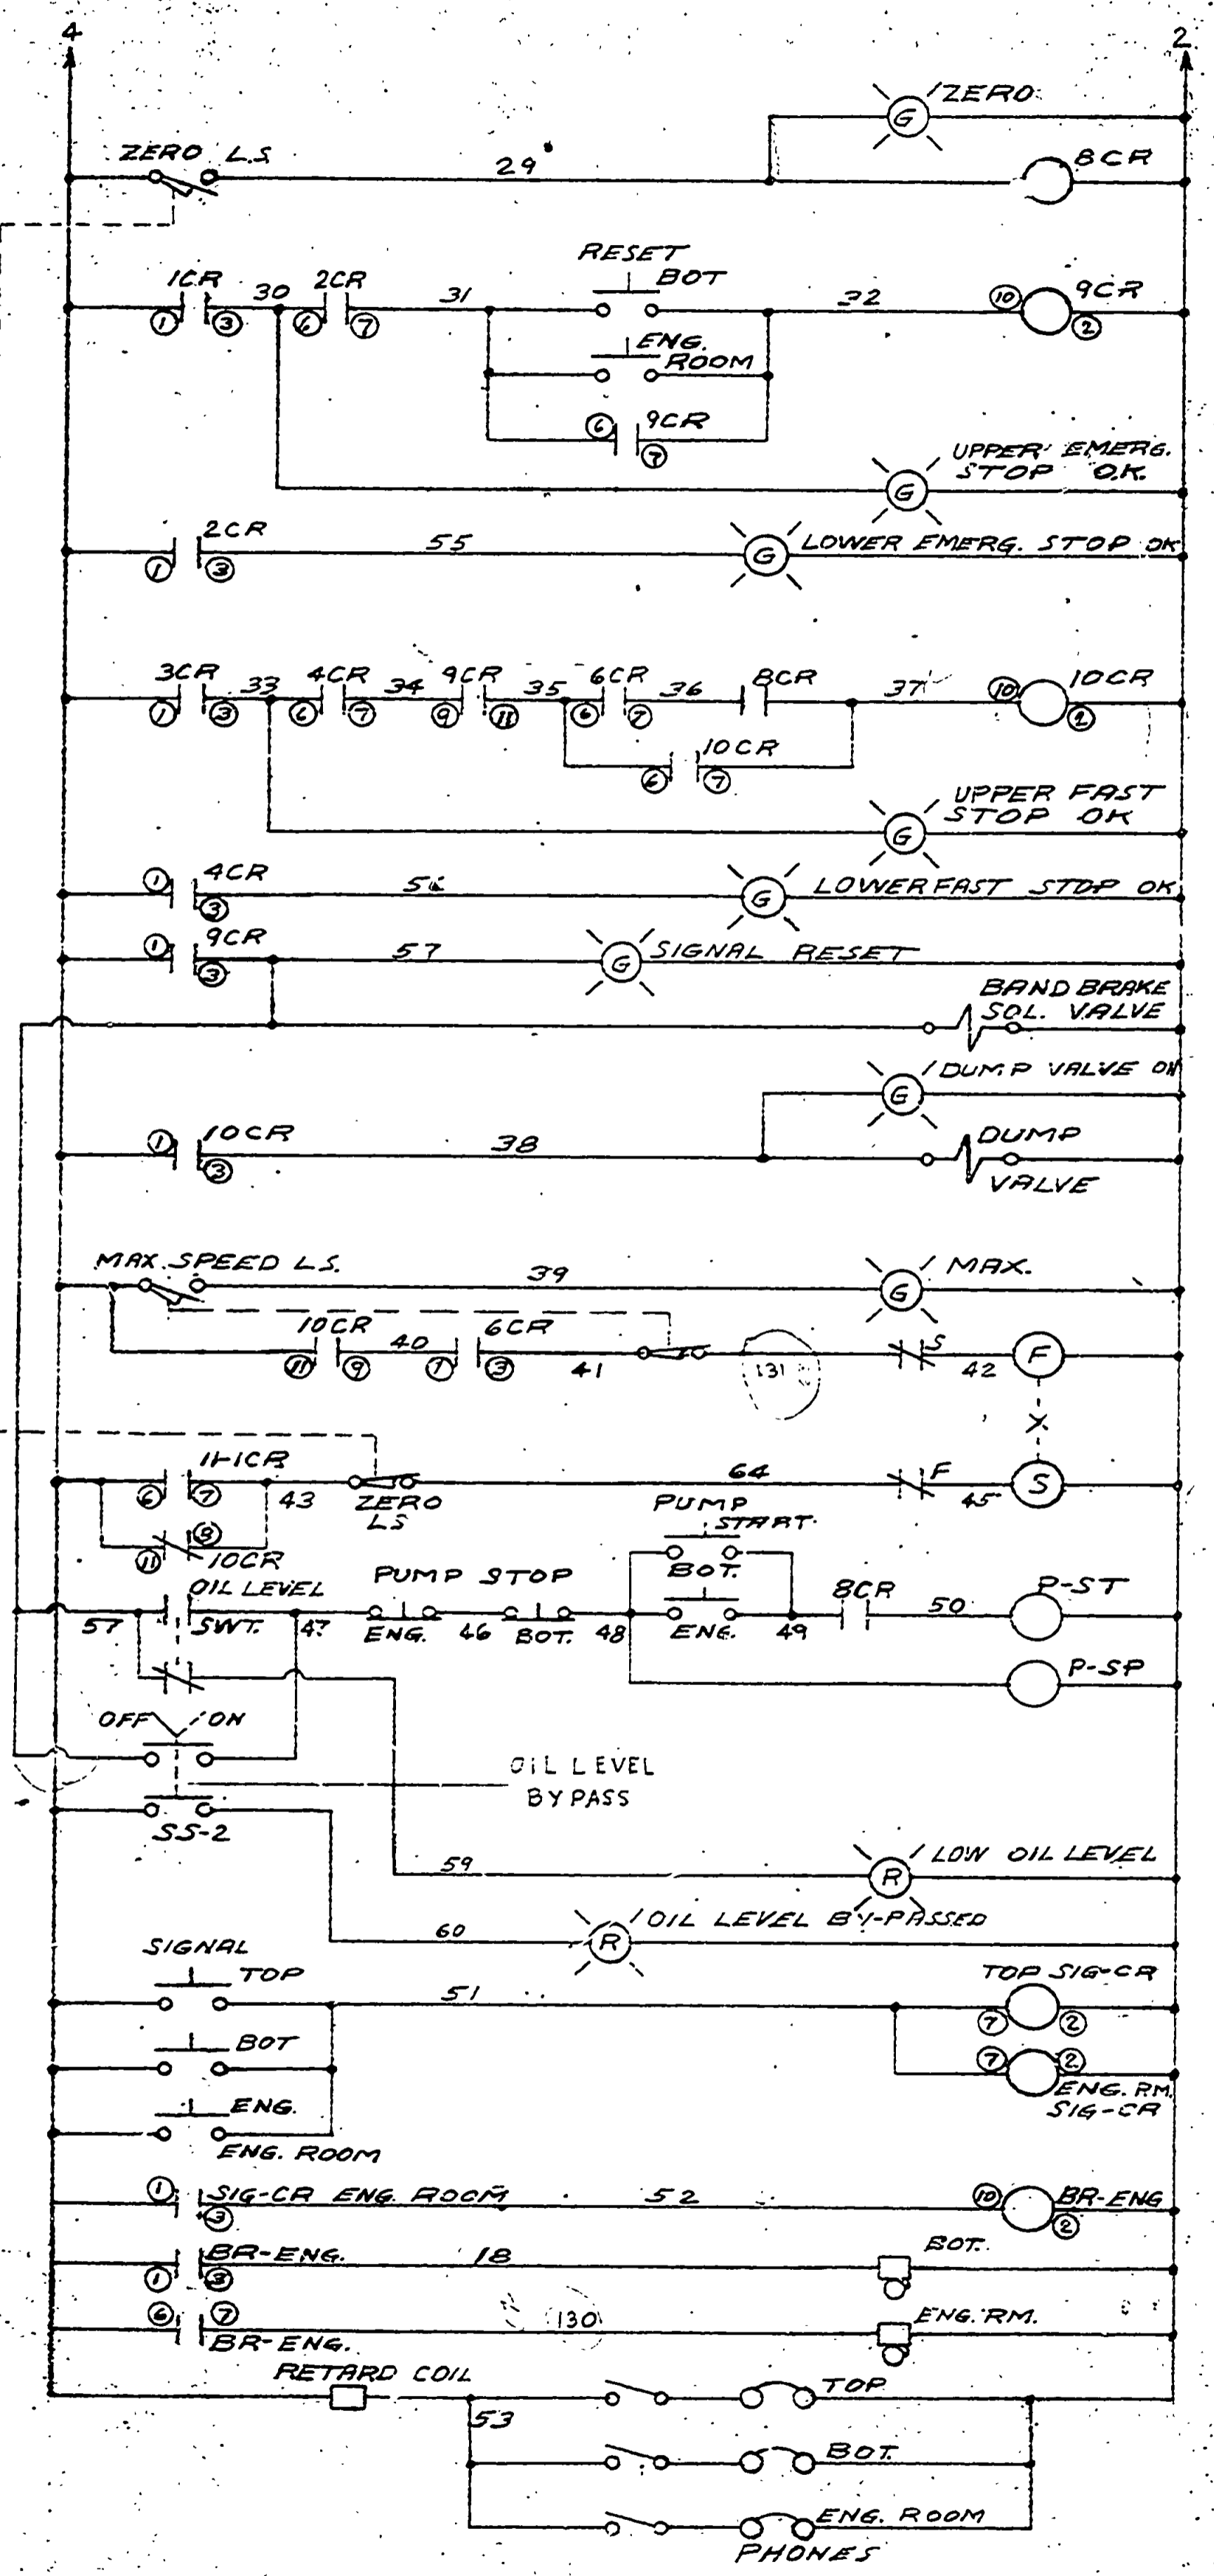 4 2
ZERO
ZERO L.S. 29 8CR
RESET
1CR 30 2CR 31 BOT 32 10 9CR
1 3 6 7 2
ENG.
ROOM
6 9CR
7
UPPER EMERG.
STOP O.K.
G
2CR 55 G LOWER EMERG. STOP OK
1 3
3CR 33 4CR 34 9CR 35 6CR 36 8CR 37 10 10CR
1 3 6 7 9 11 6 7 2
10CR
6 7
UPPER FAST
STOP OK
G
1 4CR 56 G LOWER FAST STOP OK
3
1 9CR 57 G SIGNAL RESET
3
BAND BRAKE
SOL. VALVE
G DUMP VALVE ON
1 10CR 38 DUMP
3 VALVE
MAX. SPEED L.S. 39 G MAX.
10CR 40 6CR S
11 9 1 3 41 131 42 F
X
1-1CR 64 F
6 7 43 ZERO 45 S
LS
8 PUMP
11 10CR START
OIL LEVEL PUMP STOP BOT. 8CR P-ST
57 SWT. 47 ENG. 46 BOT. 48 ENG. 49 50
P-SP
OFF ON
OIL LEVEL
BYPASS
SS-2
59 R LOW OIL LEVEL
60 R OIL LEVEL BY-PASSED
SIGNAL
TOP 51 TOP SIG-CR
7 2
BOT
7 2
ENG. ENG. RM.
SIG-CR
ENG. ROOM
1 SIG-CR ENG. ROOM 52 10 BR-ENG
3 2
BR-ENG. 18 BOT.
1 3
6 7 130 ENG. RM.
BR-ENG.
RETARD COIL TOP
53
BOT.
ENG. ROOM
PHONES